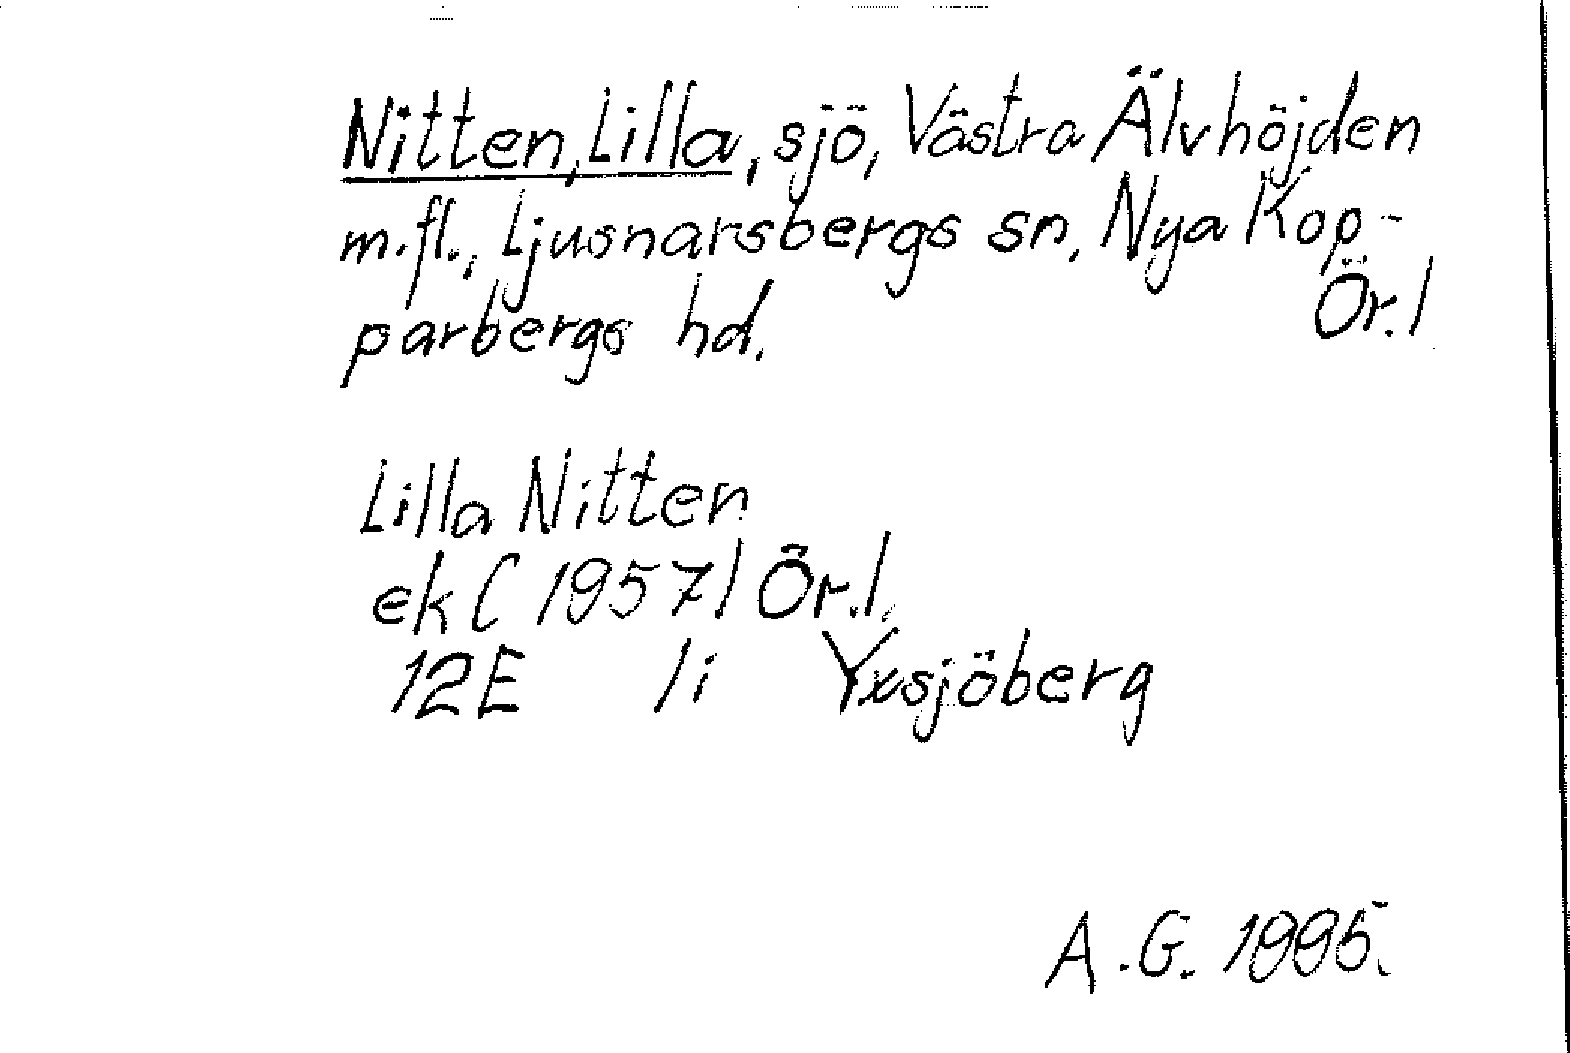 Nitten, Lilla, sjö, Västra Älvhöjden
m.fl., Ljusnarsbergs sn, Nya Kop-
parbergs hd. Ör.l
Lilla Nitten
ek (1957) Ör.l.
12E 1i Yxsjöberg
A.G. 1995.